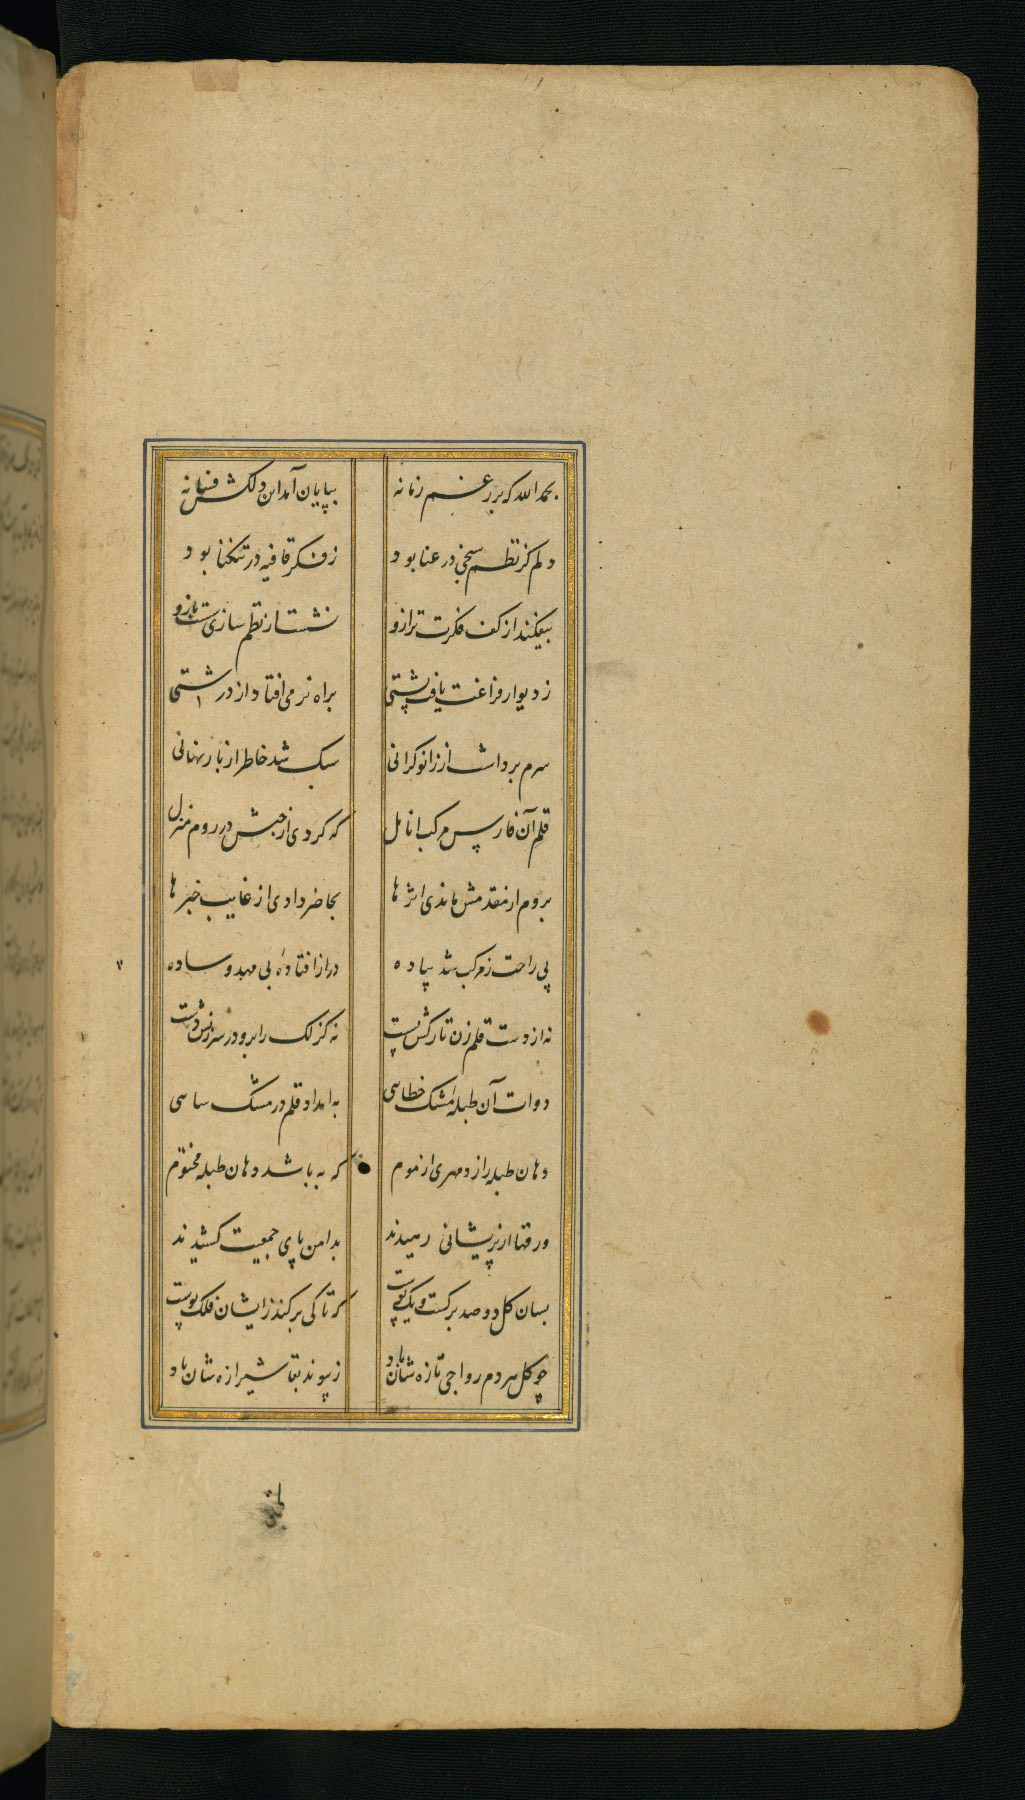 بحمدالله که بر رغم زمانه بپایان آمد این دلکش فسانه
دلم کز نظم سنجی در عنا بود ز فکر قافیه در تنگنا بود
بیفکند از کف فکرت ترازو نشست از نظم سازی سست بازو
ز دیوار فراغت یافت پشتی براه نرمی افتاد از درشتی
سرم برداشت از زانو کرانی سبک شد خاطر از بار نهانی
قلم آن فارس مرکب انامل که کردی از حبش در روم منزل
بروم از مقدمش ماندی اثرها بحاضر دادی از غایب خبرها
پی راحت ز مرکب شد پیاده دراز افتادهٔ بی مهد و ساده
نه از دست قلم زن تارکش پست نه کزلک را برو در سرزنش دست
دوات آن طبلهٔ مشک خطاسی به امداد قلم در مشک ساسی
دهان طبله را زد مهری از موم که به باشد دهان طبله مختوم
ورقها از پریشانی رمیدند بدامن پای جمعیت کشیدند
بسان کل دو صد برکست و یک پوست که تا کی برکند زایشان فلک پوست
چو کل هر دم رواجی تازه شان باد ز پیوند بقا شیرازه شان باد